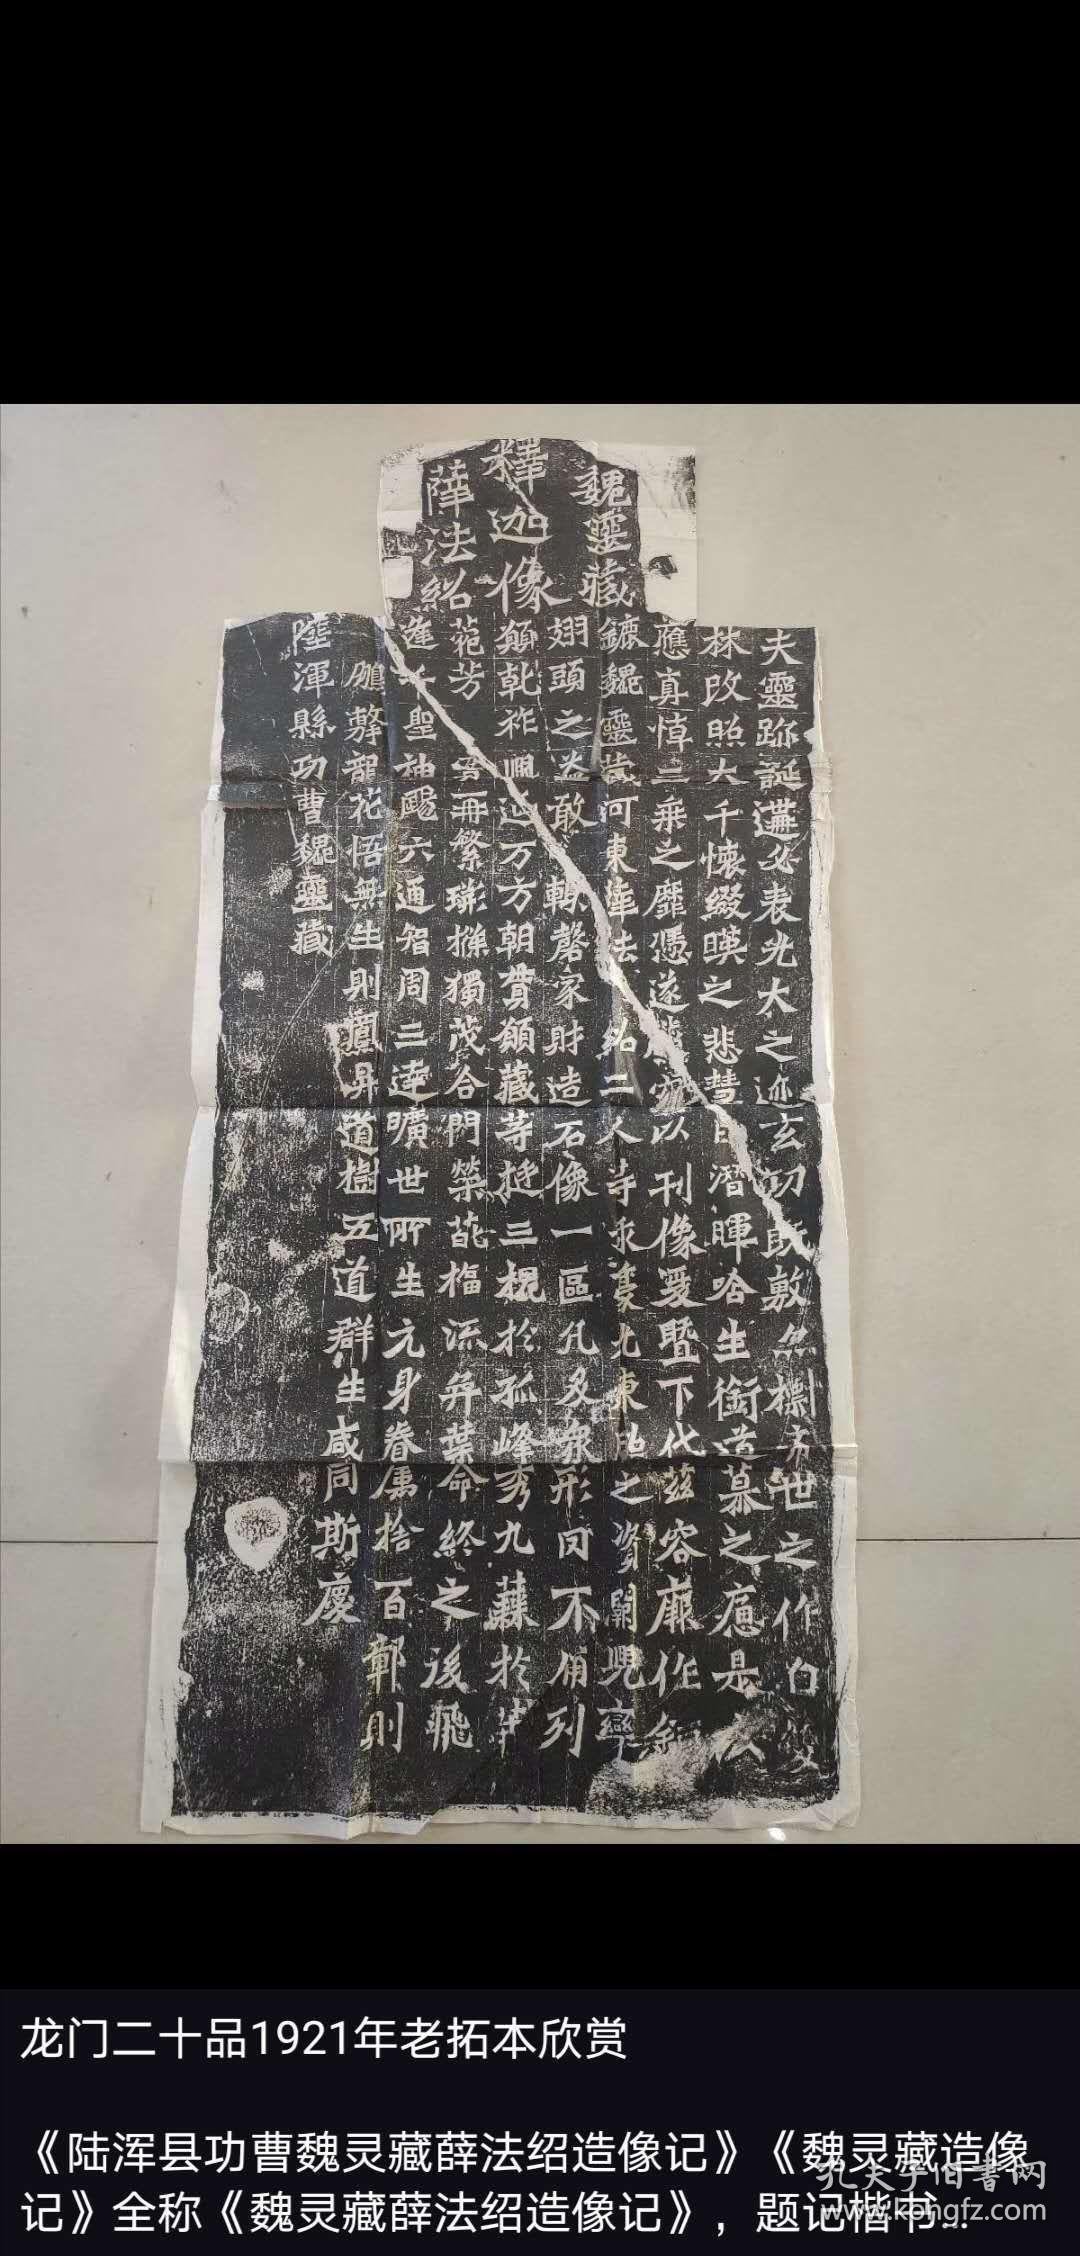 魏靈藏
釋迦像
薛法紹
夫靈跡誕遘必表光大之迹玄功既敷亦標希世之作自雙
林改照大千懷綴暎之悲慧日潛暉唅生銜道慕之痛是以
應真悼三乘之靡憑遂騰空以刊像爰暨下代茲容厥作鉅
鏕魏靈藏河東薛法紹二人等求豪光東照之資闕兜率
翅頭之益敢輒磬家財造石像一區凡及衆形罔不備列
願乾祚興延万方朝貫願藏等挺三槐於孤峰秀九蕀於華
菀芳實再繁荆條獨茂合門榮葩福流弈葉命終之後飛
逢千聖神颺六通智周三達曠世所生元身眷属捨百鄣則
鵬擊龍花悟無生則鳳昇道樹五道群生咸同斯慶
陸渾縣功曹魏靈藏
龙门二十品1921年老拓本欣赏
《陆浑县功曹魏灵藏薛法绍造像记》《魏灵藏造像
记》全称《魏灵藏薛法绍造像记》，题记楷书...
孔夫子旧书网
www.kongfz.com